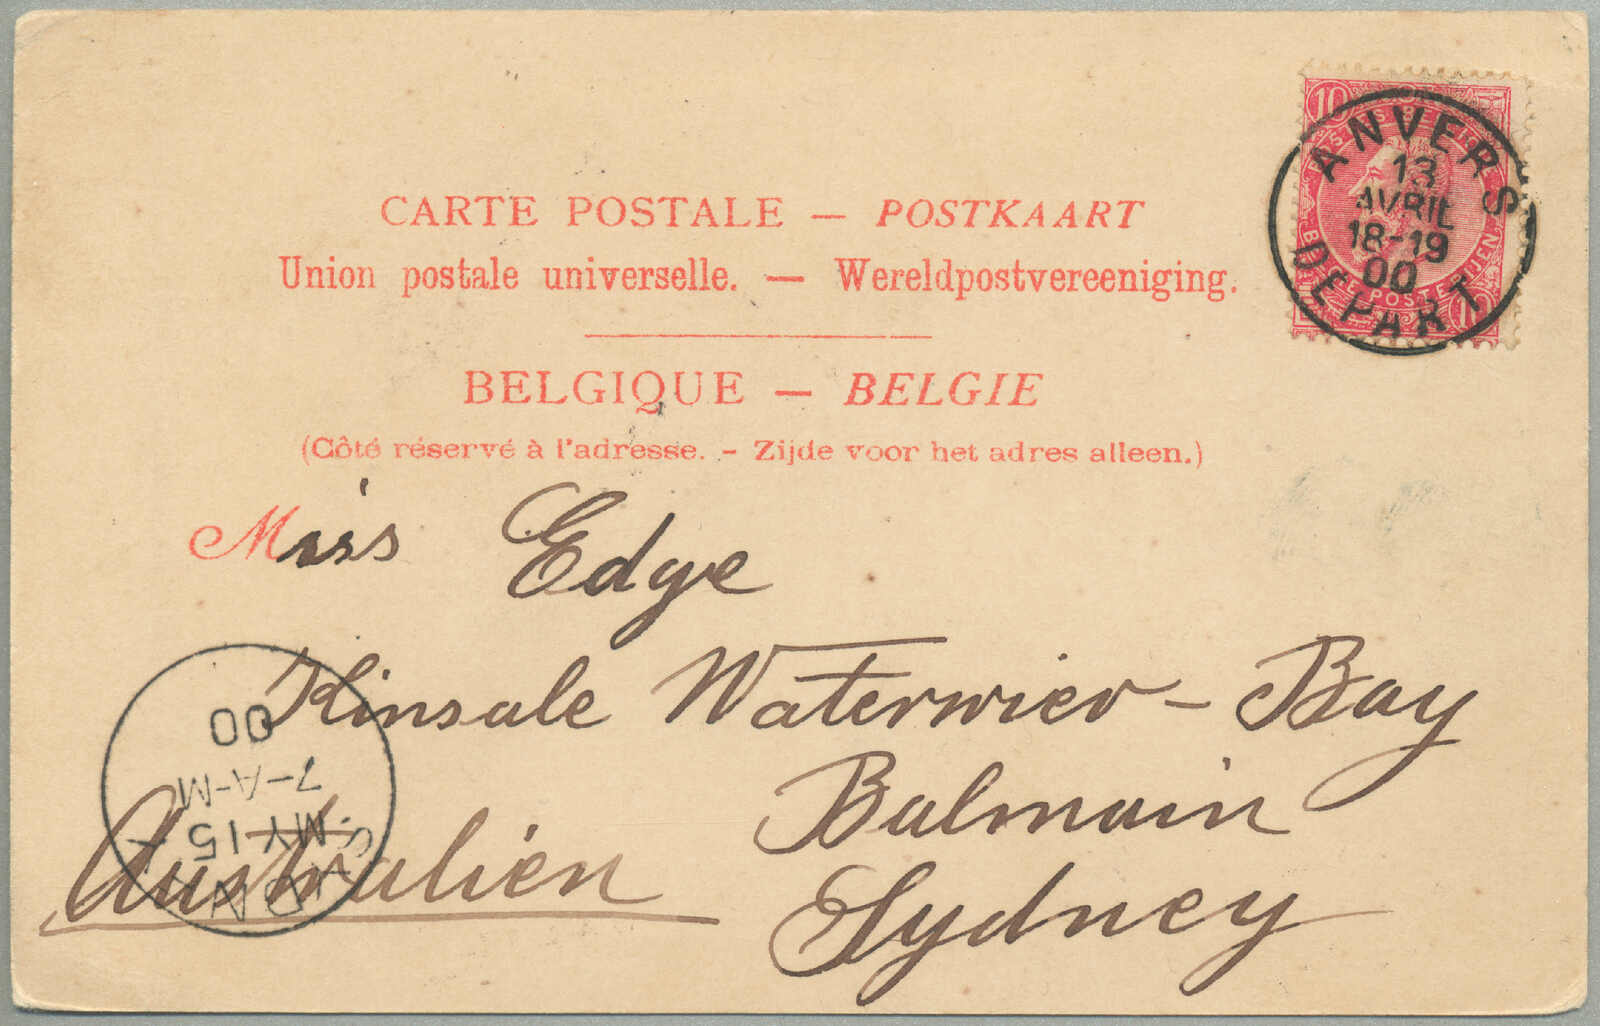 CARTE POSTALE — POSTKAART
Union postale universelle. — Wereldpostvereeniging.
BELGIQUE — BELGIE
(Côté réservé à l'adresse. - Zijde voor het adres alleen.)
10
ANVERS
13
AVRIL
18-19
00
DÉPART
Miss Edge
Kinsale Waterwiev - Bay
Balmain
Sydney
Australien
SYDNEY
MY 15
7-A-M
00